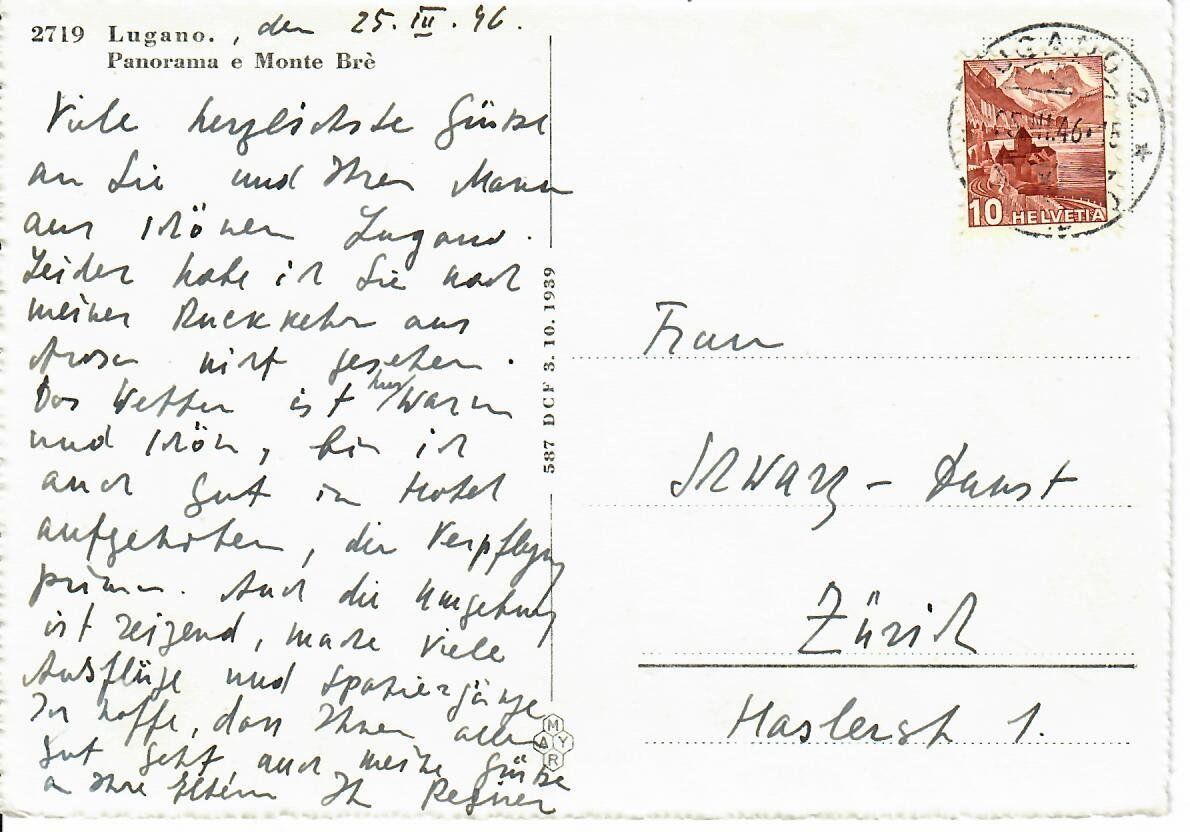 2719 Lugano. , den 25. III. 46.
Panorama e Monte Brè
Viele herzlichste Grüsse
an Sie und Ihren Mann
aus schönen Lugano.
Leider habe ich Sie nach
meiner Ruckkehr aus
Arosa nicht gesehen.
Das Wetter ist hier warm
und schön, bin ich
auch gut im Hotel
aufgehoben, die Verpflegung
prima. Auch die Umgebung
ist reizend, mache viele
Ausflüge und Spaziergänge
Ich hoffe, dass Ihnen allen
gut geht auch meine Grüsse
an Ihre Eltern Ih
587 DCF 3. 10. 1939
MYRA
LUGANO 2
25.III.46.15
10 HELVETIA
Frau
Schwarz - Dunst
Zürich
Haslerstr 1.